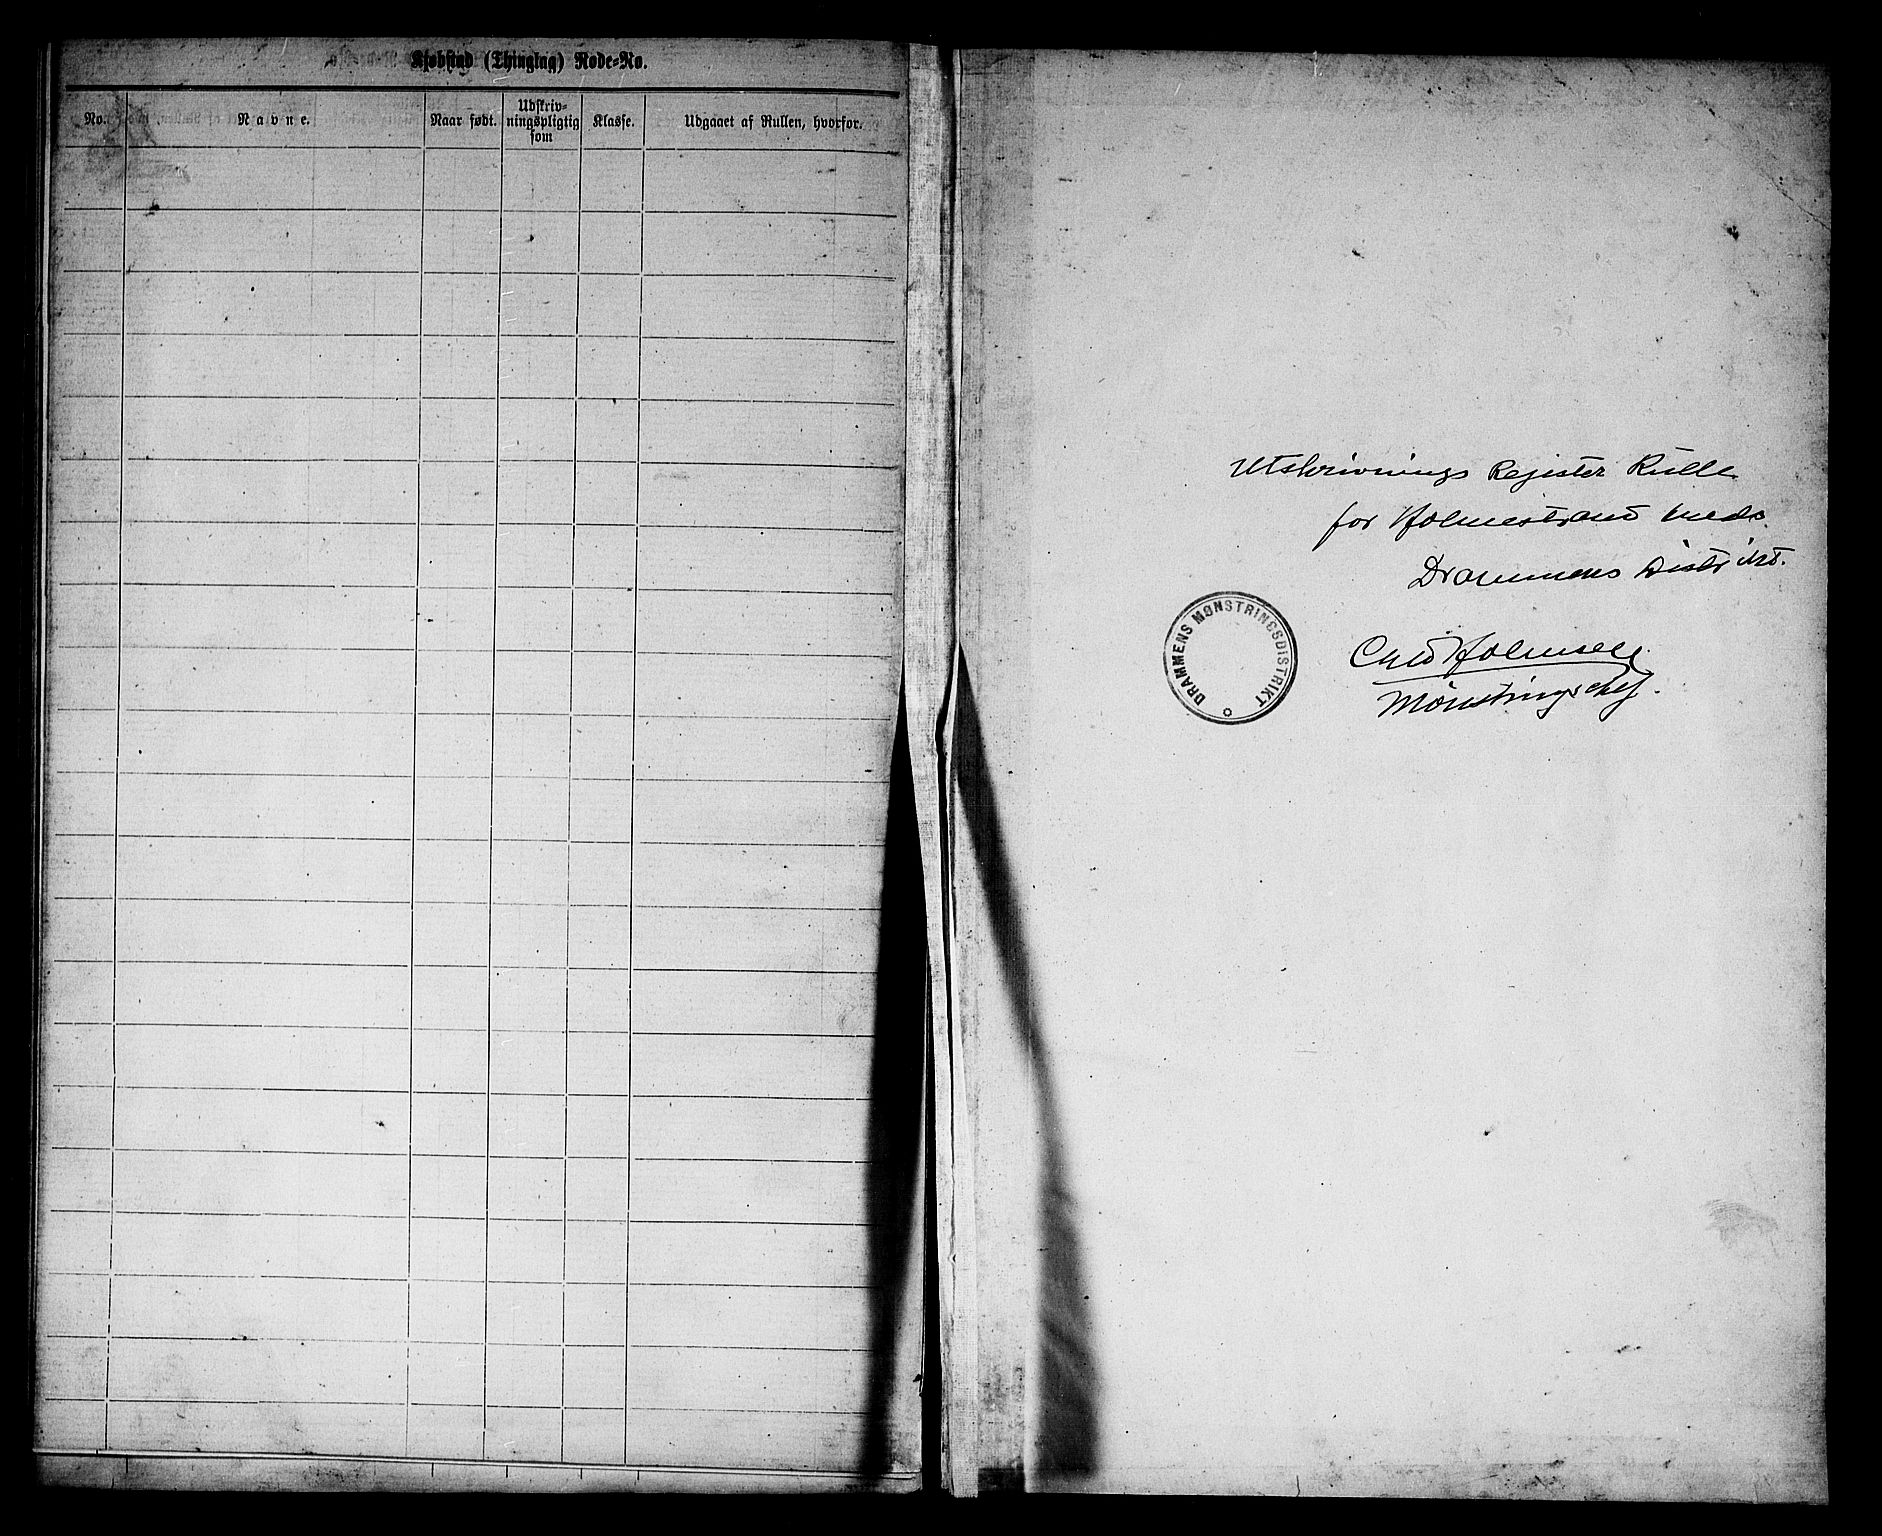 Kjøbstad (Thinglag) Rode-No.
No.
Navne.
Naar født.
Udskriv-
ningspligtig
som
Klasse.
Udgaaet af Rullen, hvorfor.
Utskrivnings Rejister Rulle
for Holmestrand
Drammens Distrikt.
DRAMMENS MØNSTRINGSDISTRIKT
Mønstringschef.